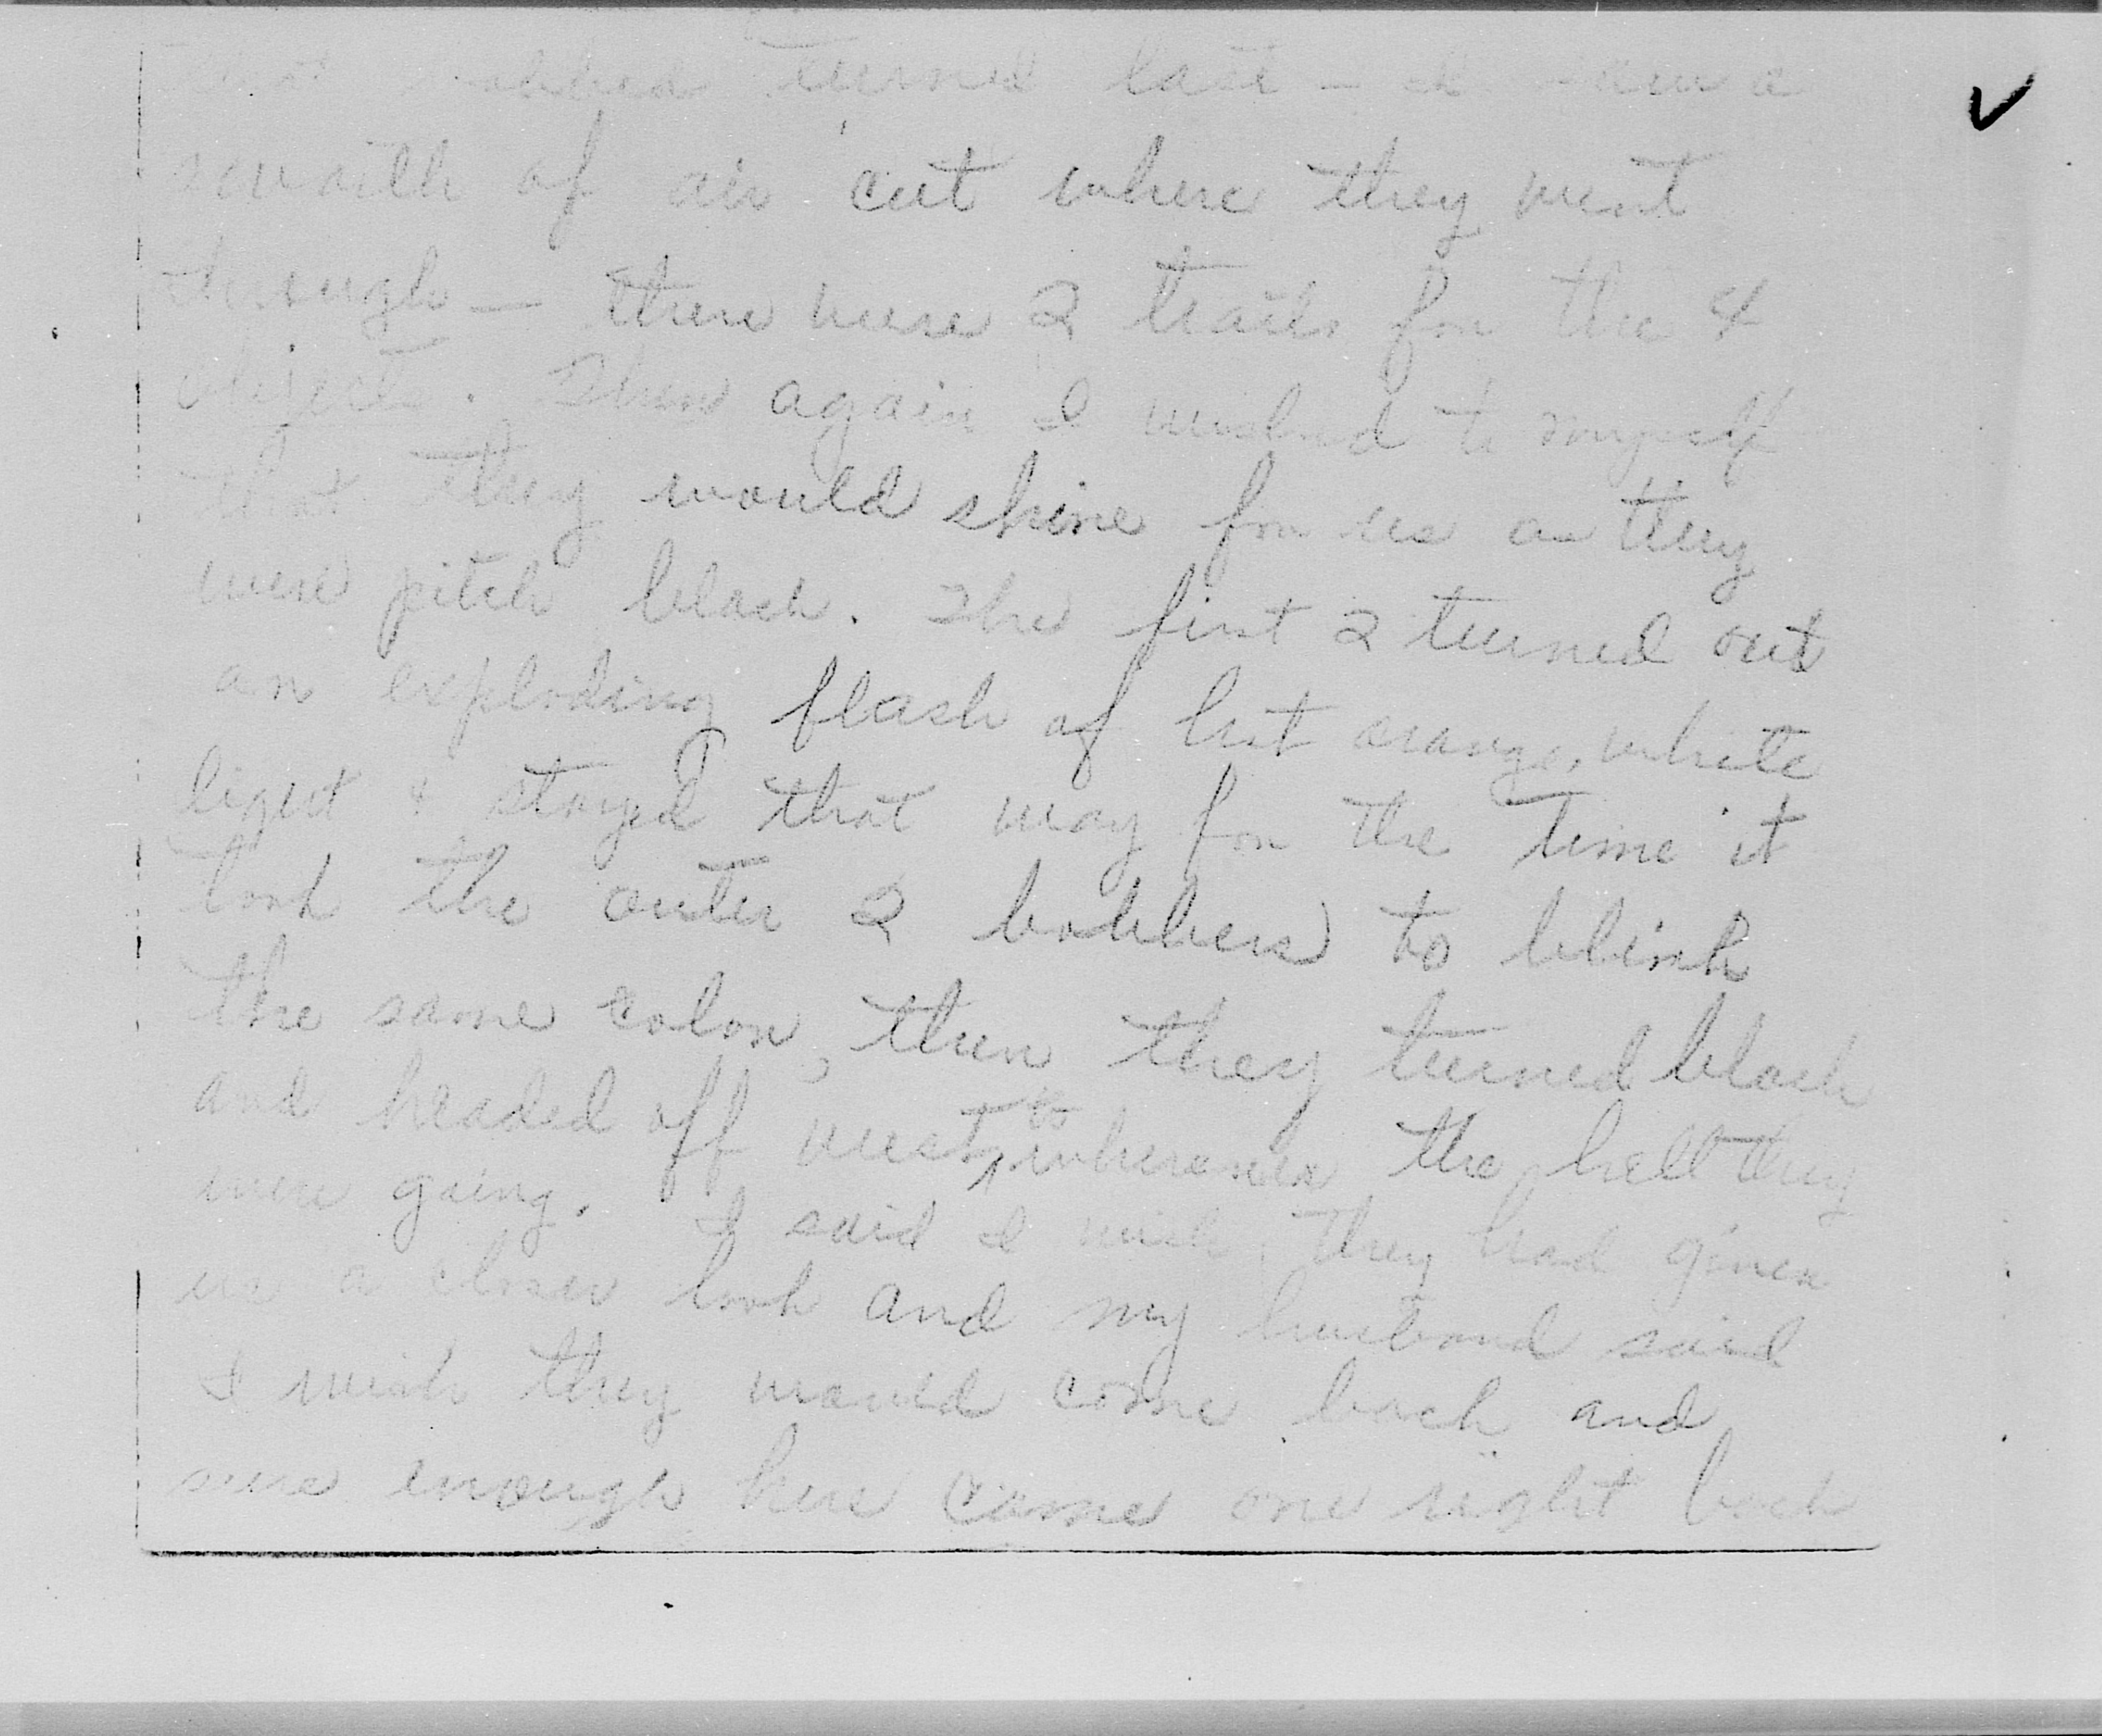 turned last — I saw a
swath of air cut where they went
through — there were 2 trails for the 4
objects. Then again I wished to myself
that they would shine for us as they
were pitch black. The first 2 turned out
an exploding flash of hot orange, white
light & stayed that way for the time it
took the outer 2 bobbers to blink
the same color, then they turned black
and headed off west, to wherever the hell they
were going. I said I wish they had given
us a closer look and my husband said
I wish they would come back and
sure enough here came one right back